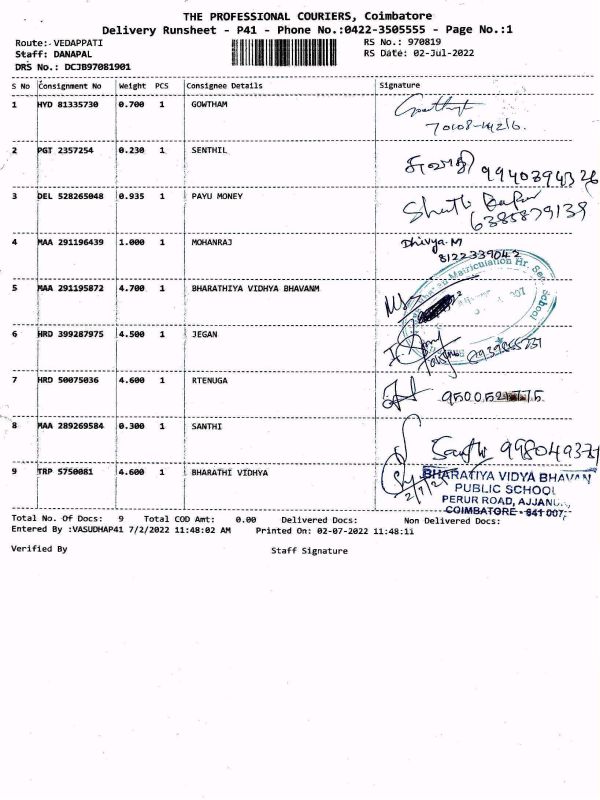 THE PROFESSIONAL COURIERS, Coimbatore
Delivery Runsheet - P41 - Phone No.:0422-3505555 - Page No.:1
Route:- VEDAPPATI RS No.: 970819
Staff: DANAPAL RS Date: 02-Jul-2022
DRS No.: DCJB97081901
S No Consignment No Weight PCS Consignee Details Signature
1 HYD 81335730 0.700 1 GOWTHAM
70108-14216.
2 PGT 2357254 0.230 1 SENTHIL
9940394326
3 DEL 528265048 0.935 1 PAYU MONEY
6385879139
4 MAA 291196439 1.000 1 MOHANRAJ Dhivya.M
8122339042
Matriculation Hr. Sec. School
5 MAA 291195872 4.700 1 BHARATHIYA VIDHYA BHAVANM
6 HRD 399287975 4.500 1 JEGAN
7 HRD 50075036 4.600 1 RTENUGA
8 MAA 289269584 0.300 1 SANTHI Santhi
9 TRP 5750081 4.600 1 BHARATHI VIDHYA
BHARATIYA VIDYA BHAVAN
PUBLIC SCHOOL
PERUR ROAD,
COIMBATORE - 641 007
Total No. Of Docs: 9 Total COD Amt: 0.00 Delivered Docs: Non Delivered Docs:
Entered By :VASUDHAP41 7/2/2022 11:48:02 AM Printed On: 02-07-2022 11:48:11
Verified By Staff Signature